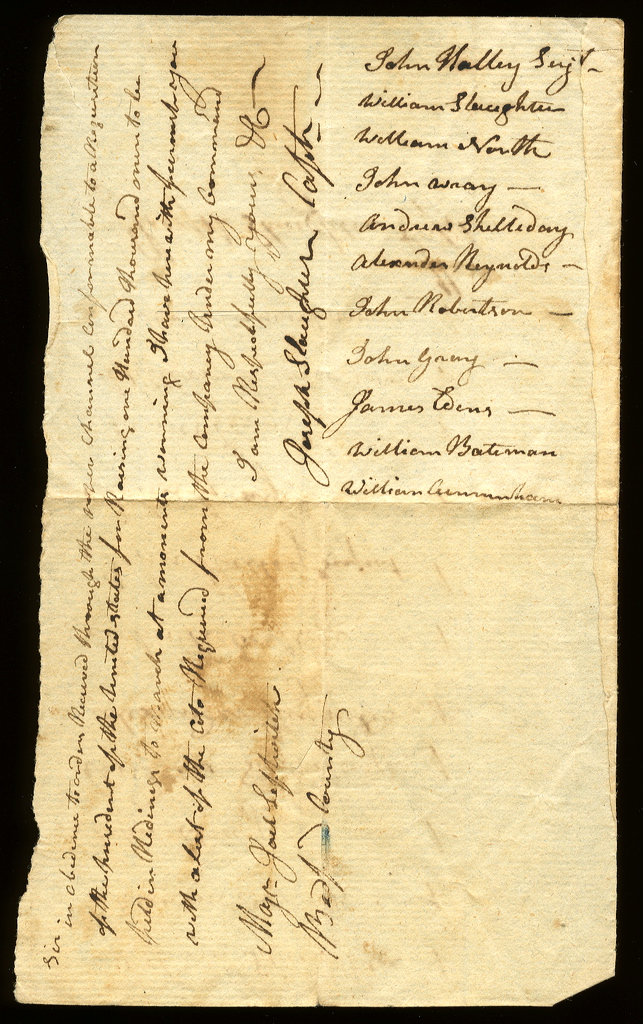 Sir in obedience to orders Received through the proper Channel Conformable to a Requisition
of the president of the United States for Raising one Hundred thousand men to be
held in Rediness to march at a moments warning I have herewith furnish you
with a list of the Cota Required from the Company under my Command
I am Respectfully yours &C
Joseph Slaughter Capt
Majr Joel Leftwich
Bedfd County
John Halley Sergt
William Slaughter
William North
John wray
Andrew Shelleday
Alexander Reynolds
John Robertson
John Gray
James Edens
William Bateman
William Cunninham